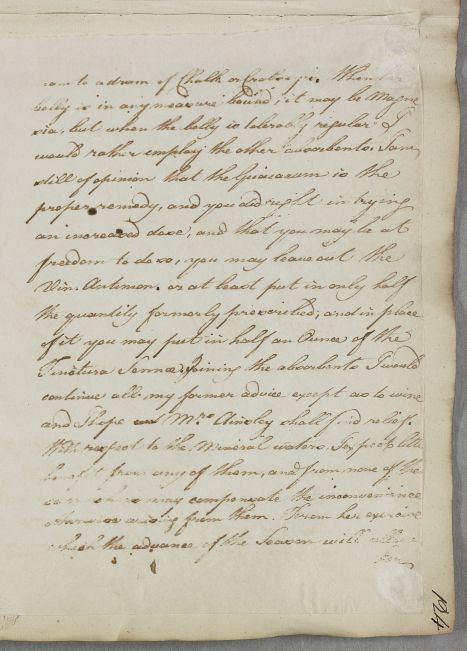 to a dram of Chalk or When her
belly is in any measure bound, it may be Magne
sia, but when the belly is tolerably regular I
would rather employ the other absorbents. I am
still of opinion that the Guiacarum is the
proper remedy, and you did right in trying
an increased dose, and that you may be at
freedom to dose, you may leave out the
Vin. Antimon. or at least put in only half
the quantity formerly prescribed, and in place
of it you may put in half an Ounce of the
Tinctura Sennae Joining the absorbents I would
continue all my former advice except as to wine
and I hope Mrs Ainsley shall find relief.
With respect to the Mineral waters, I expect little
benefit from any of them, and from none of the
so much as may compensate the inconvenience
arising from them. From her exercise
which the advance of the Season will allow
her
194